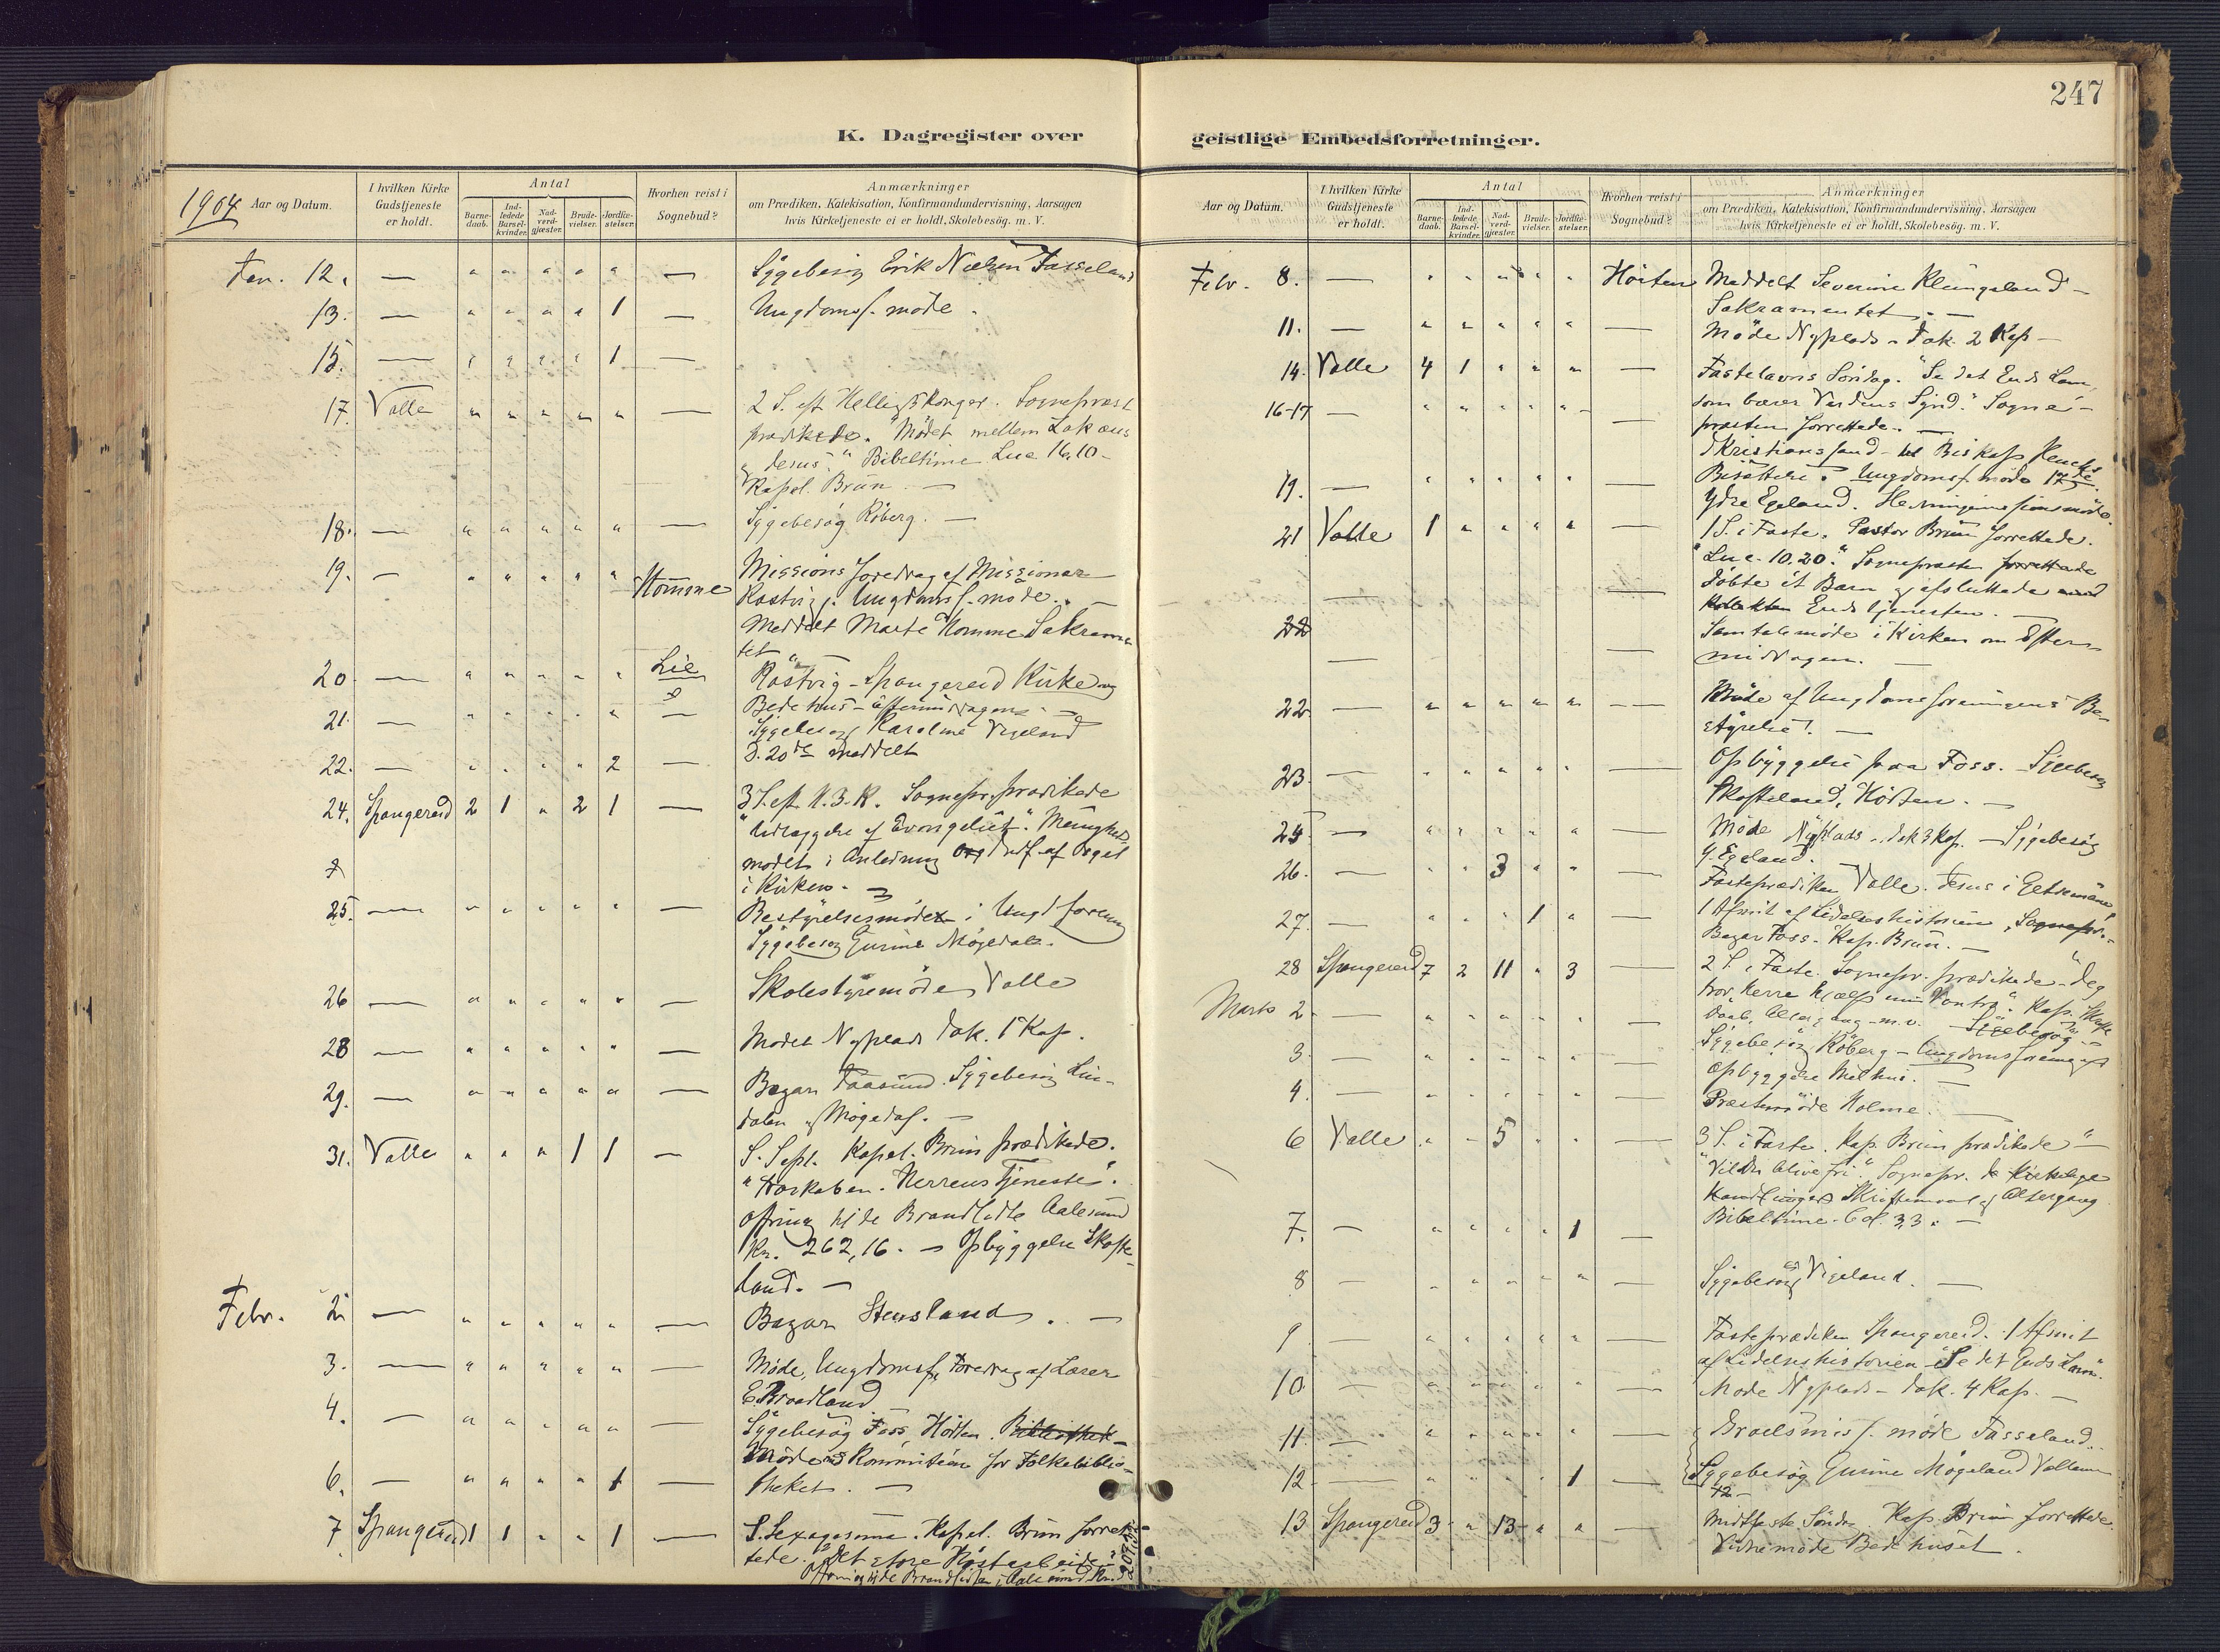 K. Dagregister over
1904
Aar og Datum.
I hvilken Kirke Gudstjeneste er holdt.
Antal
Barne-daab.
Ind-ledede Barsel-kvinder.
Nad-verd-gjæster.
Brude-vielser.
Jordfæ-stelser.
Hvorhen reist i Sognebud?
Anmærkninger
om Prædiken, Katekisation, Konfirmandundervisning, Aarsagen
hvis Kirketjeneste ei er holdt, Skolebesög. m. V.
Jan. 12. — " " " " " — Sygebesög Erik Nielsen Fasseland
13. — " " " " 1 — Ungdomsf. möde.
15. — " " " " 1 —
17. Valle " " " " " — 2 S. eft Hellig 3 Konger. Sogneprest
prædikede. "Mödet mellem Zakæus
og Jesus." Bibeltime Luc 16,10 -
Kapel. Brun. —
18. — " " " " " — Sygebesög Röberg. —
19. — " " " " " Homme Missionsforedrag af Missionær
Röstvig. Ungdomsf. möde. —
Meddelt Marte Homme Sakramen
tet
20. — " " " " " Lie Röstvig - Spangereid Kirke og
Bedehus - Eftermiddagen. —
21. — " " " " " — Sygebesög Karoline Vigeland
D. 20de meddelt
22. — " " " " 2 —
24. Spangereid 2 1 " 2 1 — 3 S. eft H. 3. K. Sognepr. prædikede
"Udlæggelse af Evangeliet". Menigheds
mödet i Anledning af Orgel
i Kirken. —
25. — " " " " " — Bestyrelsesmöde i Ungd forening
Sygebesög Gurine Mögedal.
26 — " " " " " — Skolestyremöde, Valle
28 — " " " " " — Mödet Nyplads Jak. 1 Kap.
29. — " " " " " — Bazar Faasund. Sygebesög Lin-
dalen og Mögedal. —
31. Valle " " " 1 1 — S. Sept. Kapel. Brun prædikede.
Herrens Tjeneste".
Ofring til de Brandlidte Aalesund
Kr. 262,16. — Opbyggelse Skofte-
land. —
Febr. 2. — " " " " " — Bazar Stensland. —
3. — " " " " " — Möde, Ungdomsf. Foredrag af Lærer
E. Braadland
4. — " " " " " — Sygebesög Foss Hörten. Bibliothek-
Möde Kommiteen for Folkebiblio-
6. — " " " " 1 — theket. —
7 Spangereid 1 1 " " 1 — S. Sexagesima. Kapel. Brun forret
tede. "Det store Höstarbeide."
Ofring til de Brandlidte i Aalesund Kr.
247
geistlige Embedsforretninger.
Aar og Datum.
I hvilken Kirke Gudstjeneste er holdt.
Antal
Barne-daab.
Ind-ledede Barsel-kvinder.
Nad-verd-gjæster.
Brude-vielser.
Jordfæ-stelser.
Hvorhen reist i Sognebud?
Anmærkninger
om Prædiken, Katekisation, Konfirmandundervisning, Aarsagen
hvis Kirketjeneste ei er holdt, Skolebesög. m. V.
Febr. 8. — " " " " " Hörten Meddelt Severine Klungeland -
Sakramentet. —
11. — " " " " " — Möde Nyplads - Jak. 2 Kap —
14. Valle 4 1 " " " — Fastelavns Söndag. "Se det Guds Lam,
som bærer Verdens Synd." Sogne-
præsten forrettede. —
16-17 — " " " " " — I Kristianssand - til Biskop Heuchs
Bisættelse. Ungdomsf. möde 17de.
19. — " " " " " — Ydre Egeland. Hedningemissionsmöde.
21 Valle 1 " " " " — 1 S. i Faste. Pastor Brun forrettede.
"Luc. 10.20." Sognepræsten forrettede
döbte et Barn og afsluttede med
Kollekten Gudstjenesten. —
22
— — Samtalemöde i Kirken om Efter-
middagen. —
22 — " " " " " — Möde af Ungdomsforeningens Be-
styrelse. —
23. — " " " " " — Opbyggelse paa Foss. Sygebesög
Skofteland, Hörten. —
25 — " " " " " — Möde Nyplads. Jak 3 Kap. — Sygebesög
Y. Egeland.
26. — " " 3 " " — Fasteprædiken Valle. Jesus i Getsemane
1 Afsnit af Lidelseshistorien, Sognepr. -
27. — " " " 1 " — Bazar Foss. Kap. Brun. —
28 Spangereid 7 2 11 " 3 — 2 S. i Faste. Sognepr. prædikede - "Jeg
tror, Herre hjælp min Vantro". Kap.
Daab, Altergang m.v. Sygebesög
Marts 2. — " " " " " — Sygebesög Röberg - Ungdomsforening
3. — " " " " " — Opbyggelse Melhus. —
4. — " " " " " — Præstemöde Holme. —
6 Valle " " 5 " " — 3 S. i Faste. Kap. Brun prædikede —
"Vil du blive fri" Sognepr. de kirkelige
Handlinger Skriftemaal og Altergang
Bibeltime. Col. 3,3. —
7. — " " " " 1 —
8 — " " " " " — Sygebesög Vigeland. —
9 — " " " " " — Fasteprædiken Spangereid. 1 Afsnit
af Lidelseshistorien "Se det Guds Lam".
10. — " " " " " — Möde Nyplads - Jak. 4 Kap. —
11. — " " " " " — Israelsmisf. möde Fasseland.
12 — " " " " 1 — Sygebesög Gurine Mögeland Valle
12 —
13 Spangereid 3 " 13 " " — Midtfaste Söndag Kap. Brun forrettede.
möde Bedehuset.